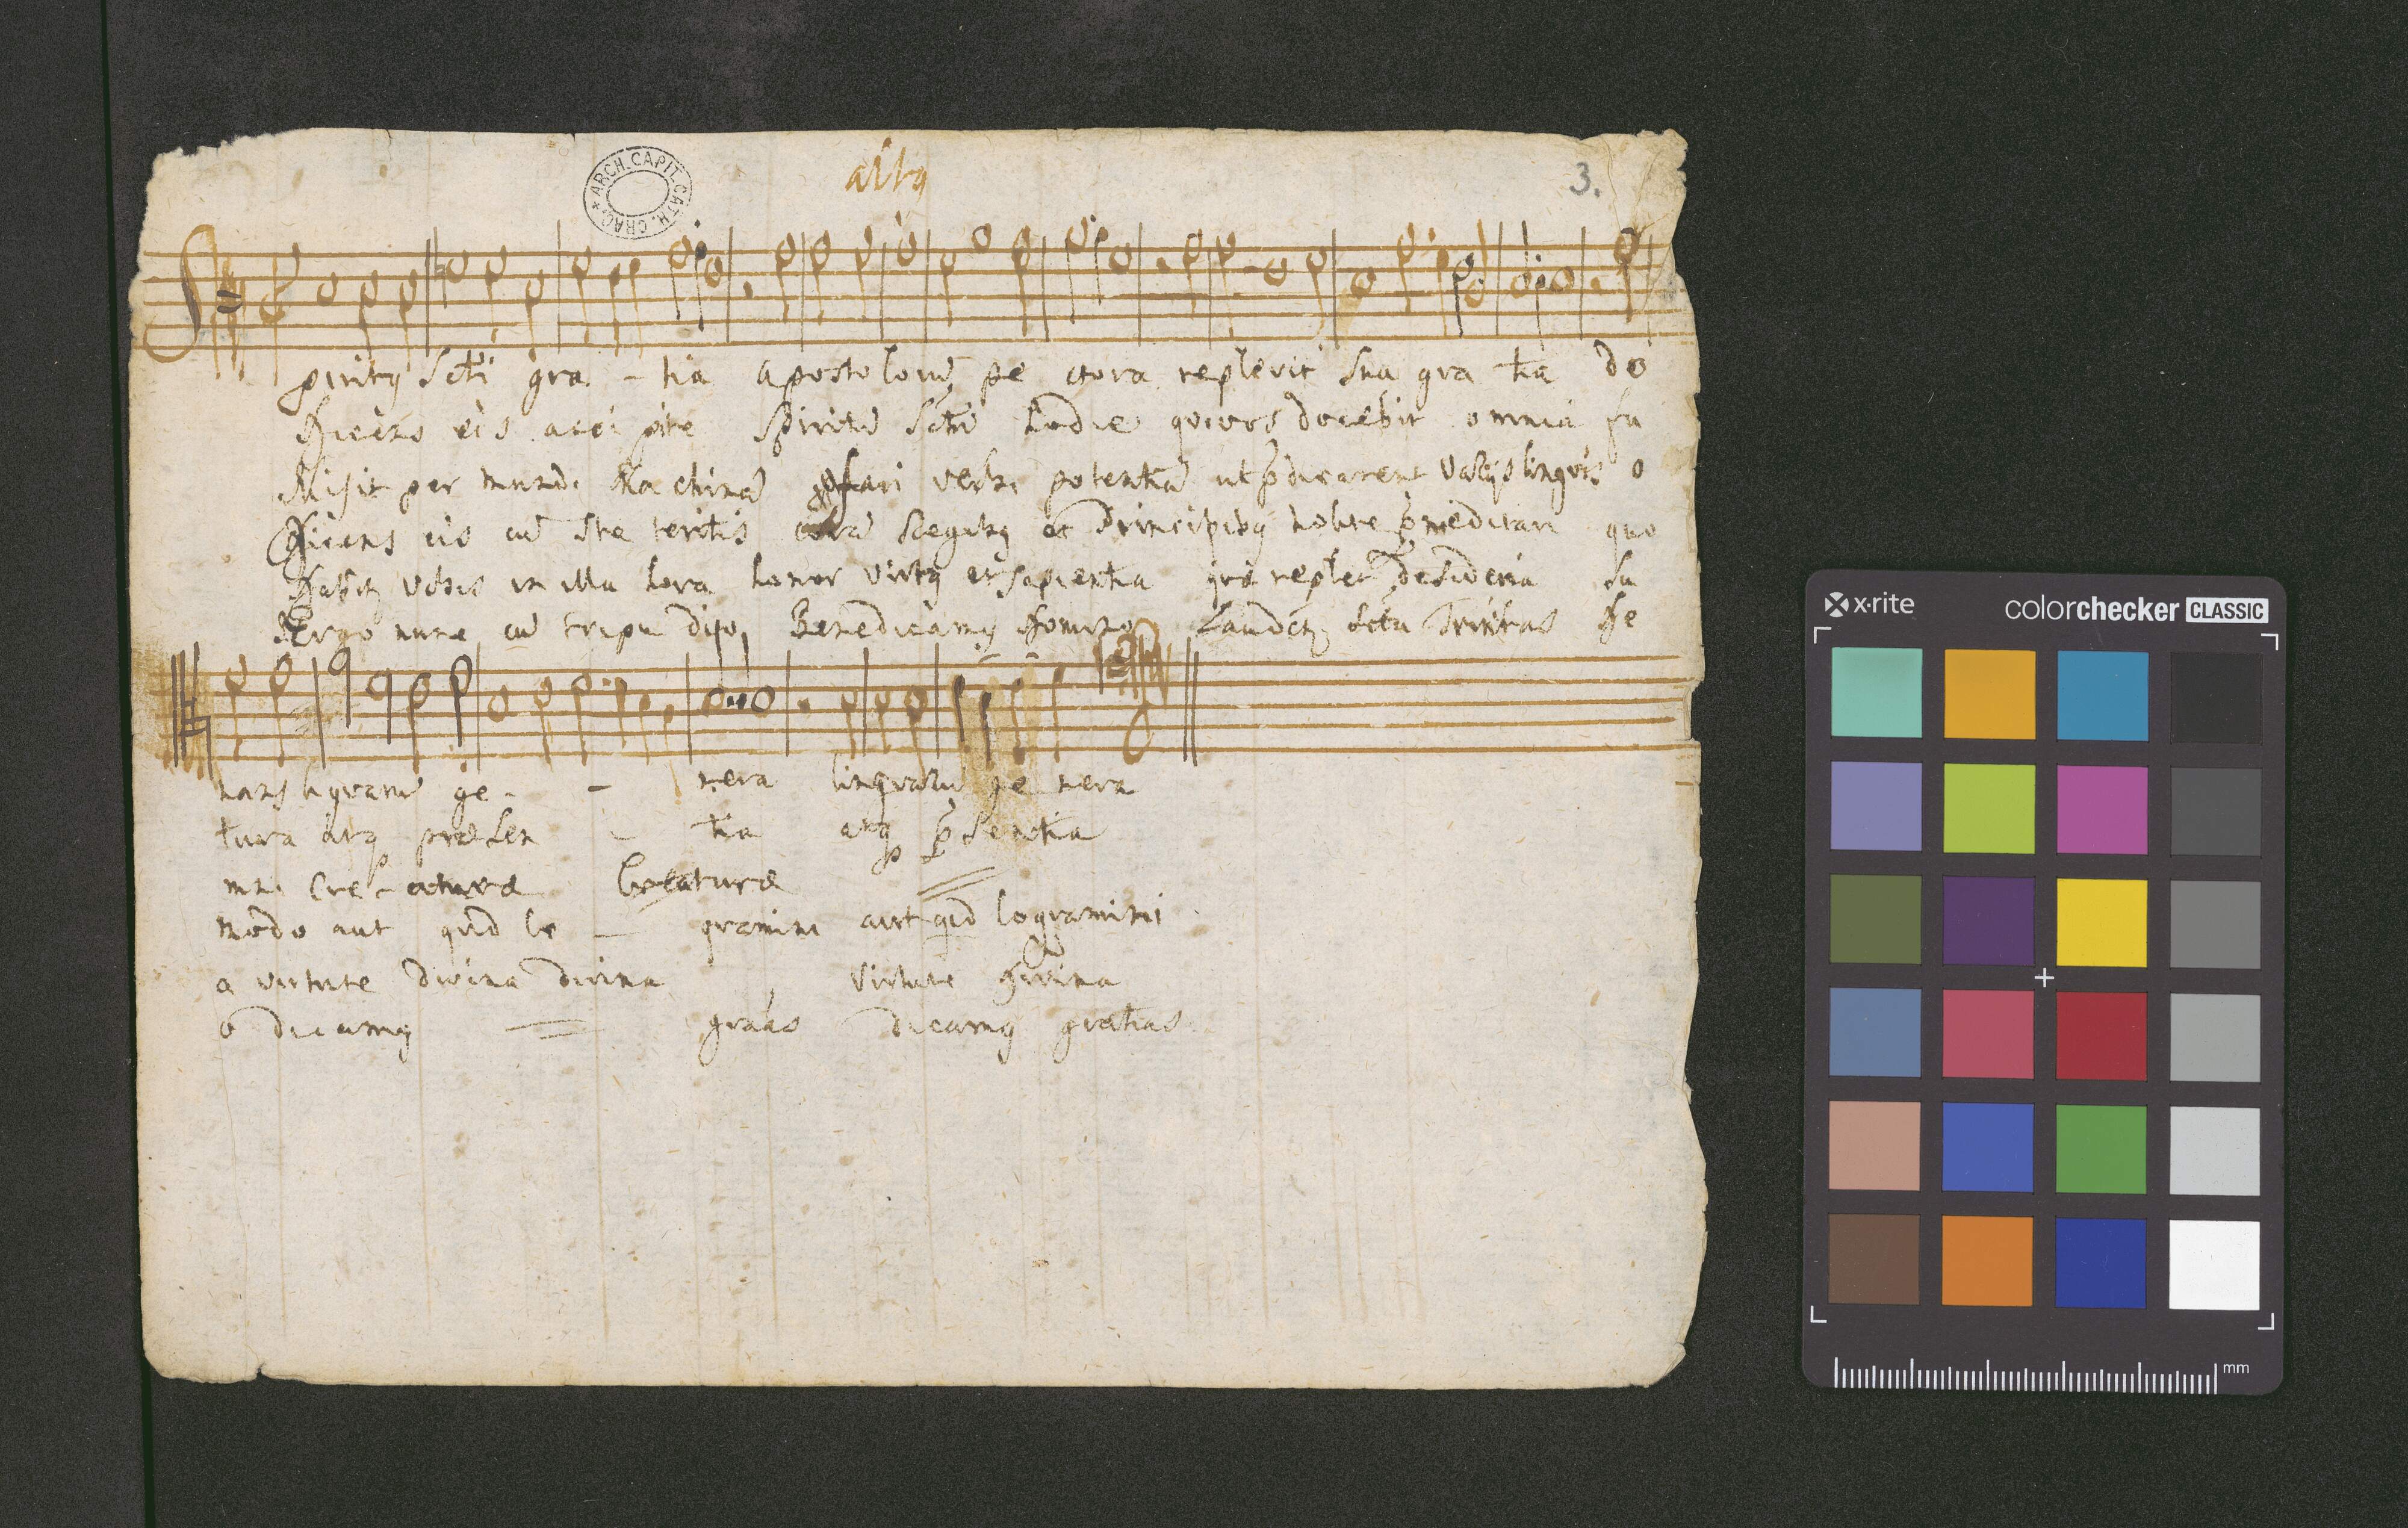 ARCH. CAPIT. CATH. CRAC.
altꝯ
3.
Spiritꝯ Scti gra - tia apostoloru pe ctora replevit sua gra tia do
Dicens eis acci pite Spiritu Sctu hodie qui vos docebit omnia fu
Misit per mundi Machina verbi potentia ut pdicarent varijs lingvis o
Dicens eis cu ste teritis cora Regibꝯ et Principibꝯ nolite pmeditari quo
Dabit vobis in illa hora honor virtꝯ et sapientia replet desideria su
Ergo nunc cu tripu dijo Benedicamꝯ Domino Laudetꝯ Scta Trinitas De
nans ligvaru ge - - nera lingvaru ge nera
tura atq præsen - tia atq psentia
mni Cre - aturæ Creaturæ
modo aut quid lo - qvamini aut qid loqvamini
a virtute divina divina virtute divina
o dicamꝯ graas dicamꝯ gratias
x-rite
colorchecker CLASSIC
mm